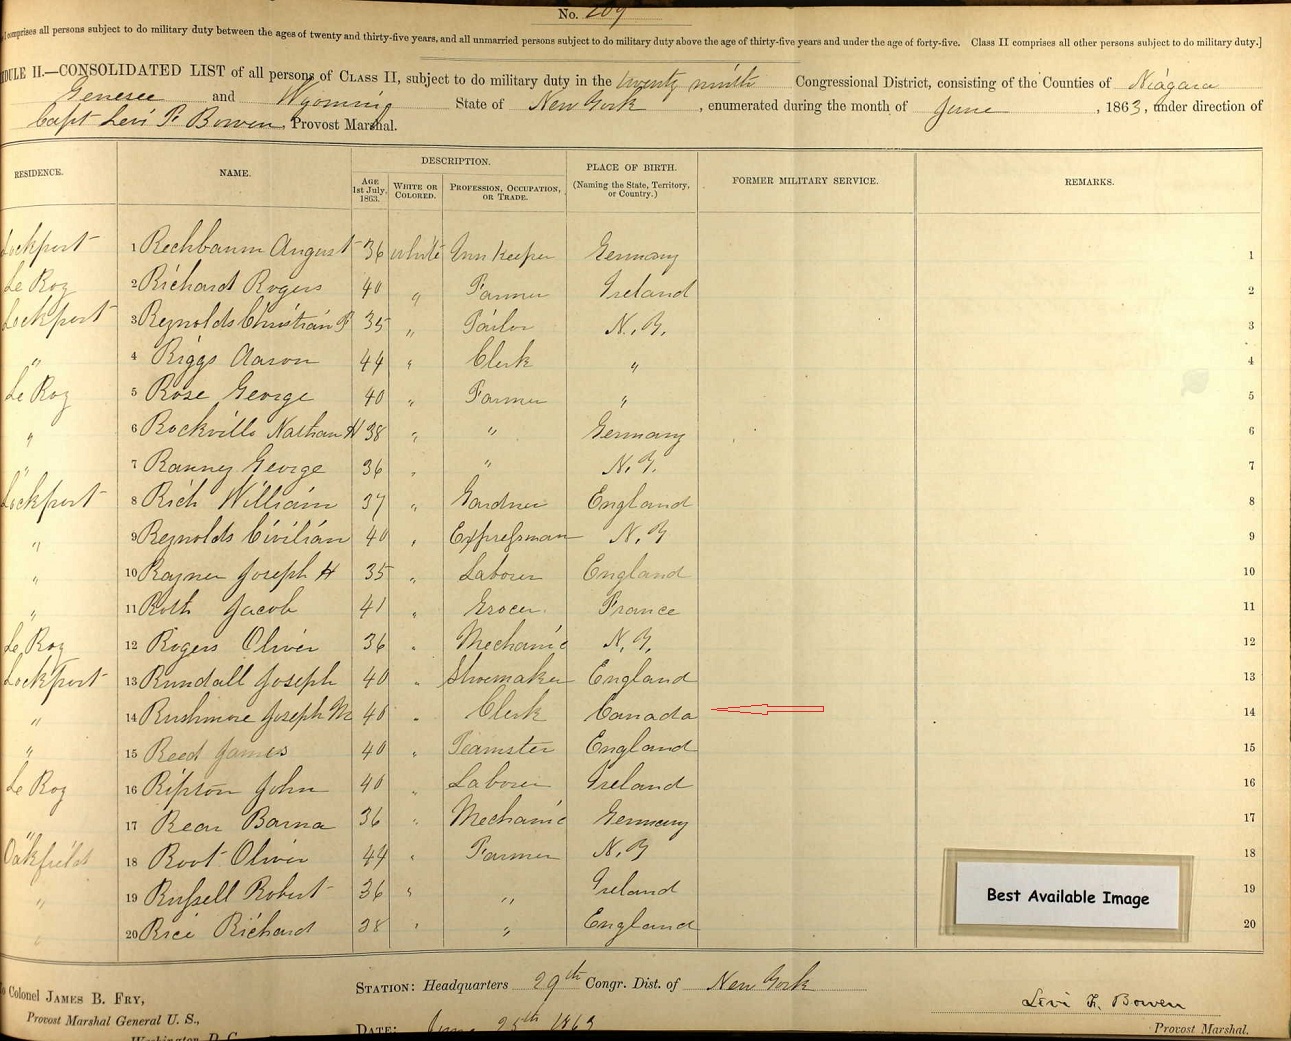 No. 209
comprises all persons subject to do military duty between the ages of twenty and thirty-five years, and all unmarried persons subject to do military duty above the age of thirty-five years and under the age of forty-five. Class II comprises all other persons subject to do military duty.]
DULE II.—CONSOLIDATED LIST of all persons of CLASS II, subject to do military duty in the twenty ninth Congressional District, consisting of the Counties of Niagara
Genesee and Wyoming State of New York, enumerated during the month of June, 1863, under direction of
Capt Levi F Bowen, Provost Marshal.
RESIDENCE. NAME. DESCRIPTION. PLACE OF BIRTH. (Naming the State, Territory, or Country.) FORMER MILITARY SERVICE. REMARKS.
AGE 1st July, 1863. WHITE OR COLORED. PROFESSION, OCCUPATION, OR TRADE.
Lockport 1 Rechbaum August 36 white Inn Keeper Germany 1
Le Roy 2 Richard Rogers 40 " Farmer Ireland 2
Lockport 3 Reynolds Christian 35 " Tailor N.Y. 3
" 4 Riggs Aaron 44 " Clerk " 4
Le Roy 5 Rose George 40 " Farmer " 5
" 6 Rockville Nathan H 38 " " Germany 6
" 7 Ranney George 36 " " N.Y. 7
Lockport 8 Rich William 37 " Gardner England 8
" 9 Reynolds Civilian 40 " Expressman N.Y 9
" 10 Rayner Joseph H 35 " Laborer England 10
" 11 Roth Jacob 41 " Grocer France 11
Le Roy 12 Rogers Oliver 36 " Mechanic N.Y. 12
Lockport 13 Rundall Joseph 40 " Shoemaker England 13
" 14 Rushmore Joseph M 40 " Clerk Canada 14
" 15 Reed James 40 " Teamster England 15
Le Roy 16 Ripson John 40 " Laborer Ireland 16
" 17 Rear Barna 36 " Mechanic Germany 17
Oakfield 18 Root Oliver 44 " Farmer N.Y 18
" 19 Russell Robert 36 " " Ireland 19
" 20 Rice Richard 38 " " England 20
Best Available Image
STATION: Headquarters 29th Congr. Dist. of New York
Colonel JAMES B. FRY,
Provost Marshal General U. S.,
Washington, D. C.
DATE: June 25th 1863
Levi F. Bowen
Provost Marshal.